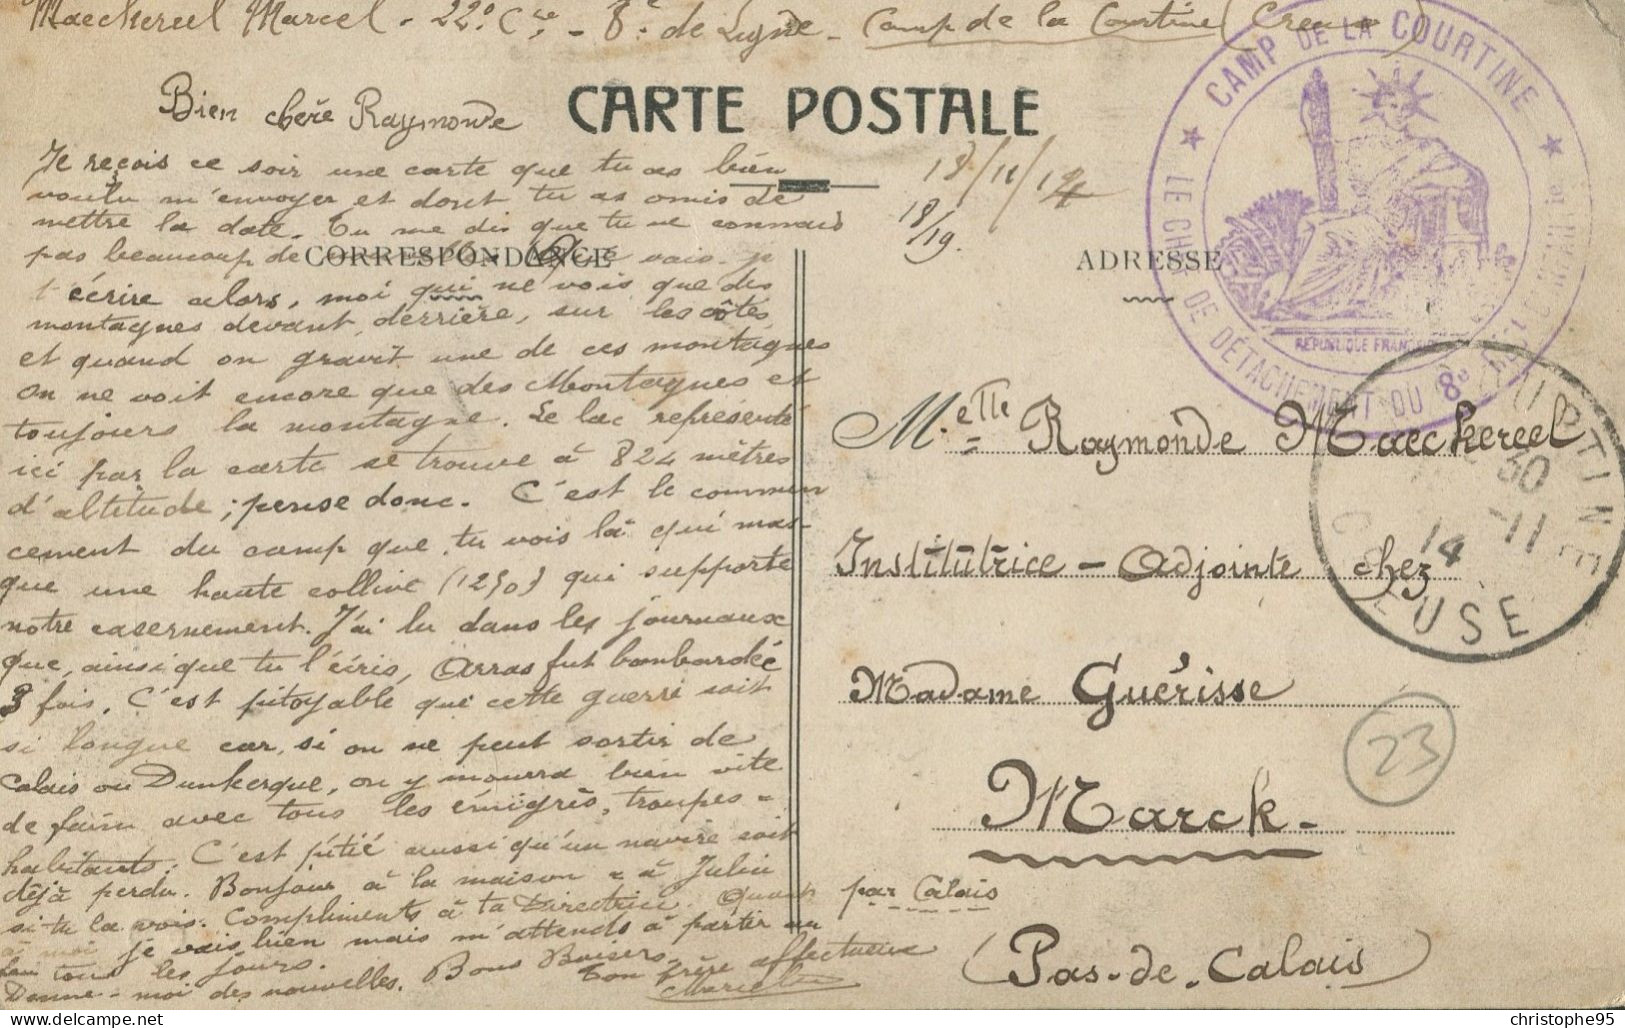 Maeckereel Marcel - 22e Cie - 8e de Ligne - Camp de la Courtine (Creuse)
CARTE POSTALE
Bien chère Raymonde
18/11/14
18/19.
Je reçois ce soir une carte que tu as bien
voulu m'envoyer et dont tu as omis de
mettre la date. Tu me dis que tu ne connais
pas beaucoup de
CORRESPONDANCE
vais-je
t'écrire alors, moi qui ne vois que des
montagnes devant, derrière, sur les côtés,
et quand on gravit une de ces montagnes
on ne voit encore que des Montagnes et
toujours la montagne. Le lac représenté
ici par la carte se trouve à 824 mètres
d'altitude ; pense donc. C'est le commen
cement du camp que tu vois là qui mas-
que une haute colline qui supporte
notre casernement. J'ai lu dans les journaux
que, ainsi que tu l'écris, Arras fut bombardée
3 fois. C'est pitoyable que cette guerre soit
si longue car, si on ne peut sortir de
Calais ou Dunkerque, on y mourra bien vite
de faim avec tous les émigrés, troupes =
habitants. C'est pitié aussi qu'un navire soit
déjà perdu. Bonjour à la maison = à Julia
si tu la vois. Compliments à ta Directrice. Quant
à moi je vais bien mais m'attends à partir au
tous les jours.
Donne-moi des nouvelles. Bons Baisers.
Ton frère affectueux
Marcel
ADRESSE
CAMP DE LA COURTINE
LE CHEF DE DÉTACHEMENT DU 8e
RÉPUBLIQUE FRANÇAISE
LA COURTINE
30
14 -11
CREUSE
Melle Raymonde Maeckereel
Institutrice - Adjointe chez
Madame Guérisse
23
Marck -
par Calais
(Pas-de-Calais)
delcampe.net
christophe95